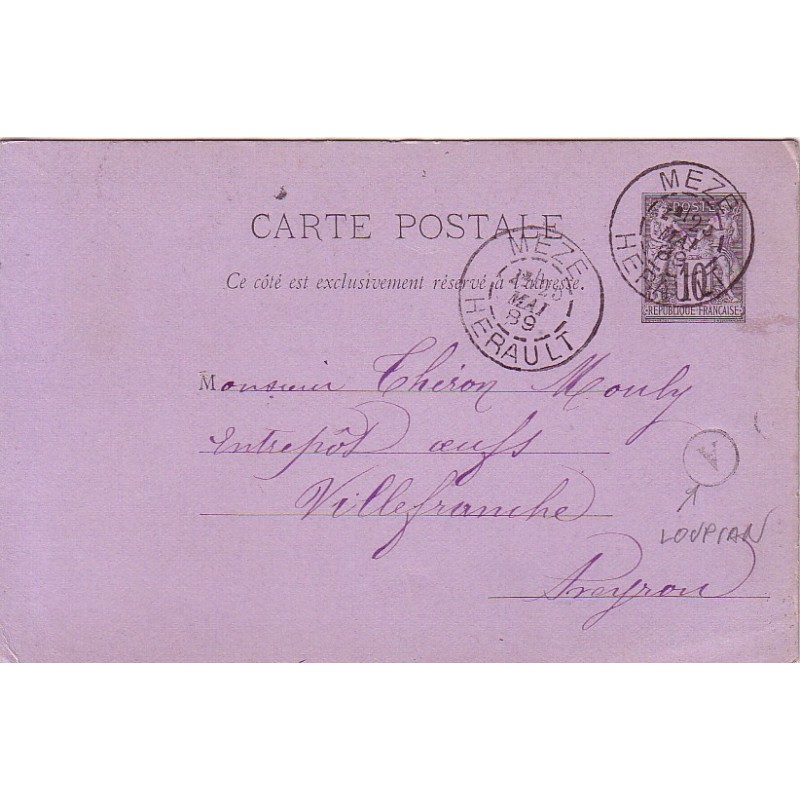 CARTE POSTALE
Ce côté est exclusivement réservé à l'adresse.
MEZE
23
MAI
89
HERAULT
MEZE
23
MAI
89
HERAULT
POSTE
10
REPUBLIQUE FRANÇAISE
Monsieur Théron Mouly
Entrepôt œufs
Villefranche
Aveyron
A
LOUPIAN